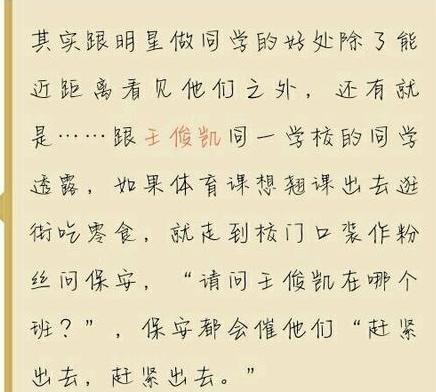 其实跟明星做同学的好处除了能
近距离看见他们之外，还有就
是……跟王俊凯同一学校的同学
透露，如果体育课想翘课出去逛
街吃零食，就走到校门口装作粉
丝问保安，“请问王俊凯在哪个
班？”，保安都会催他们“赶紧
出去，赶紧出去。”